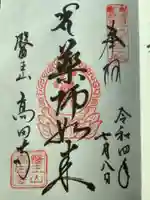 奉拝
令和四年
七月八日
薬師如来
醫王山
高田寺